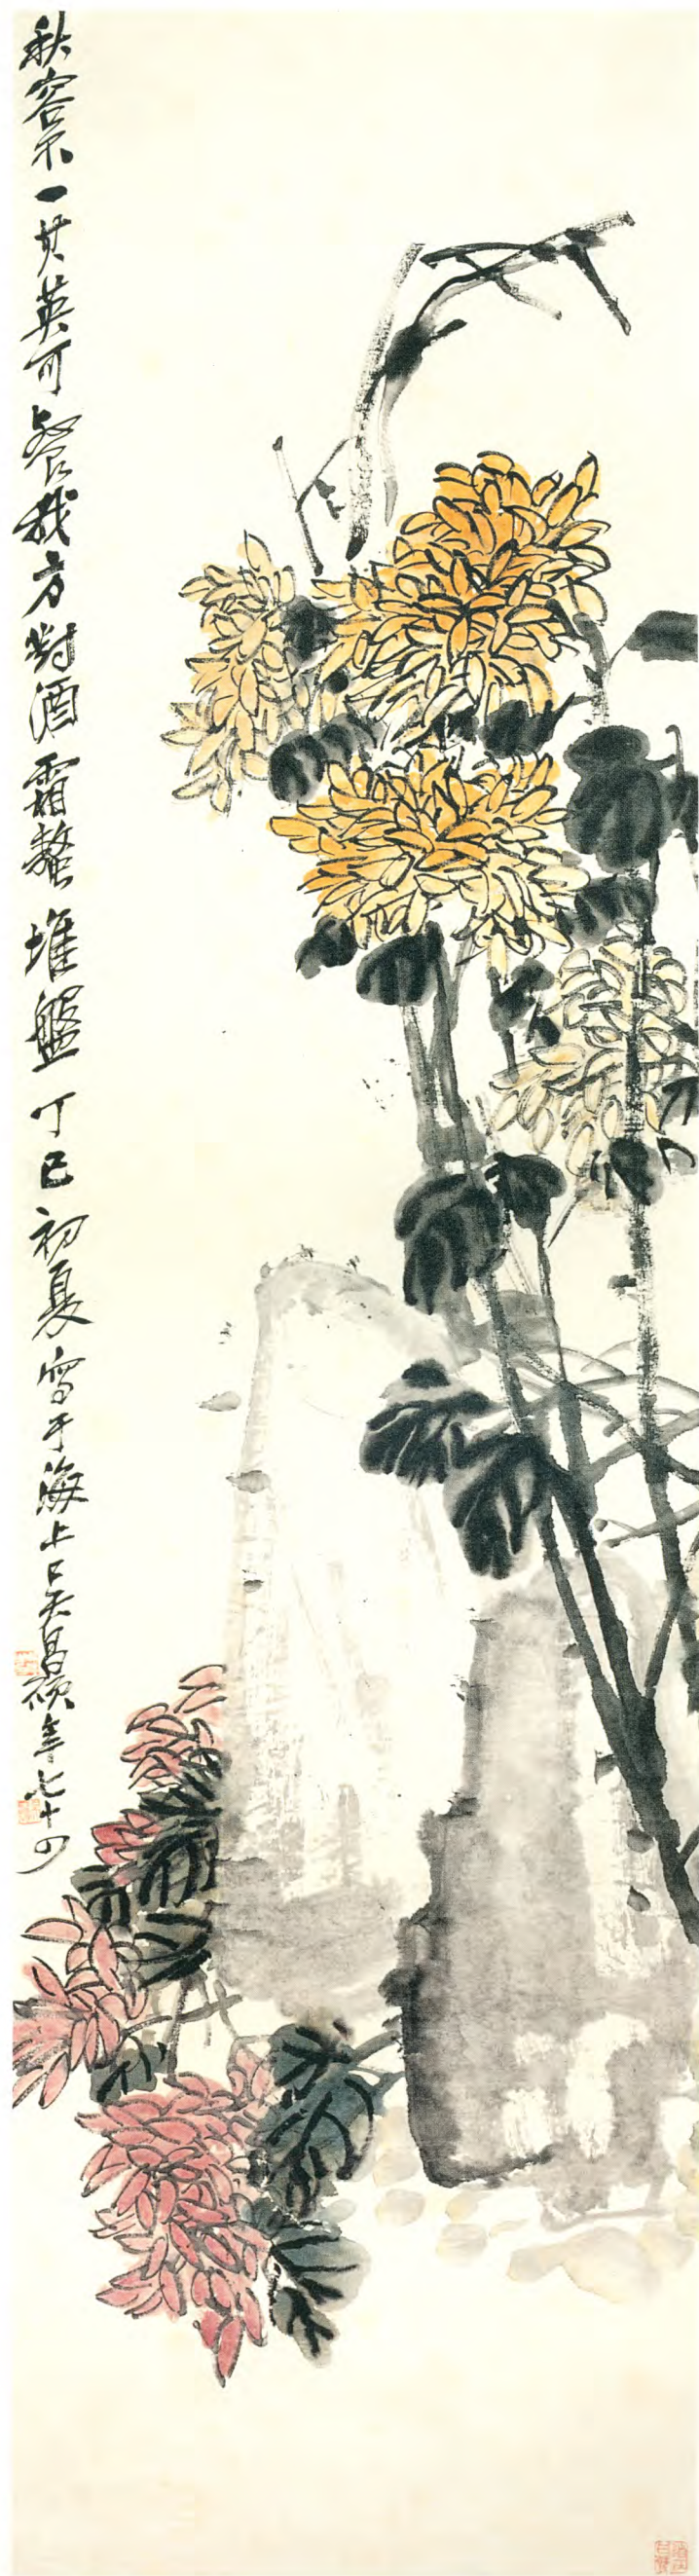 秋容不一其英可餐我方對酒霜螯堆盤丁巳初夏寫于海上吳昌碩年七十四